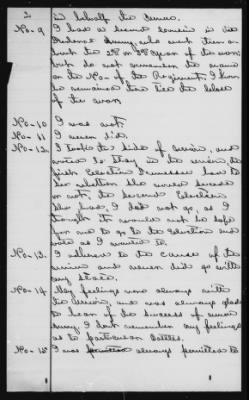 2
in behalf the same.
No-9 I had a second cousin in the
Federal Army, who went then a-
bout the 2d or 3d year of the war
but do not remember the name
or the No- of the Regiment. I know
he remained there till the close
of the war.
No-10 I was not.
No-11 I never did.
No-12 I took the side of union, and
voted to stay in the union, the
first election Tennessee had to
the rebellion she voted secede
or not, the second election
she had, I did not go, as I
thought it would not be safe
for me to go to the election and
vote as I wanted to.
No-13. I adhered to the cause of the
union and never did go with
my state.
No-14. My feelings was always with
the Union, and was always glad
to hear of the success of union
Army. I dont remember my feelings
as to particular battles.
No-15 I was always permitted to